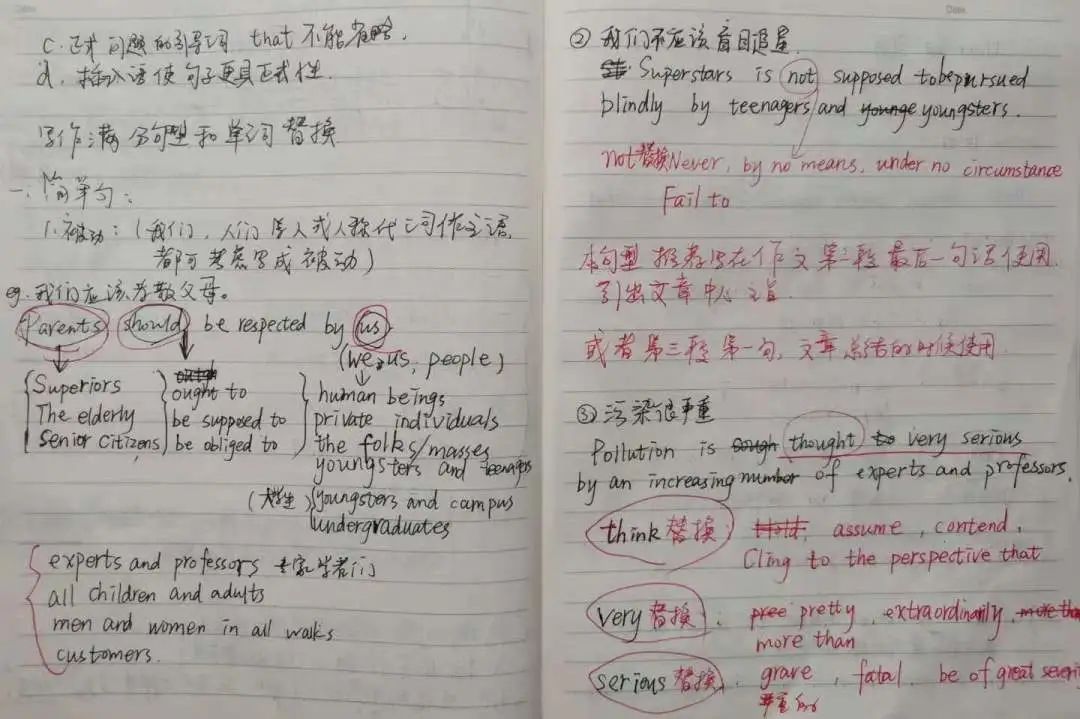 C. 正式问题的引导词 that 不能省略.
d. 插入语使句子更具正式性.
写作满分句型和单词替换
一、简单句:
1. 被动: (我们, 人们 等人或人称代词作主语
都可考虑写成被动)
eg. 我们应该孝敬父母。
Parents should be respected by us
(we, us, people)
Superiors ought to human beings
The elderly be supposed to private individuals
Senior Citizens be obliged to the folks/masses
youngsters and teenagers
(大学生) youngsters and campus
undergraduates
experts and professors 专家学者们
all children and adults
men and women in all walks
customers.
Date
② 我们不应该盲目追星
Superstars is not supposed tobepursued
blindly by teenagers and younge youngsters.
not替换Never, by no means, under no circumstance
Fail to
本句型推荐写在作文第二段最后一句话使用
引出文章中心主旨
或者第三段第一句, 文章总结的时候使用
③ 污染很严重
Pollution is thought to very serious
by an increasing number of experts and professors.
think 替换 Hold, assume, contend,
Cling to the perspective that
very 替换: pree pretty, extraordinarily, more tha
more than
serious 替换. grave, fatal. be of great severi
严重的